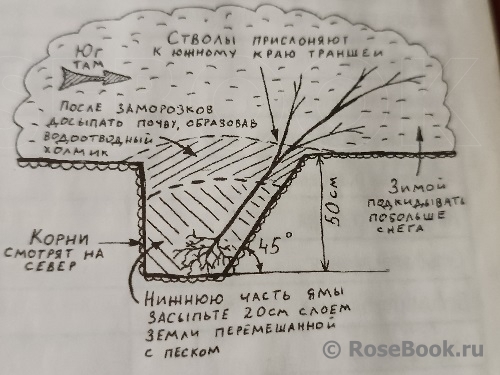 Стволы прислоняют
к южному краю траншеи
Юг
там
После заморозков
досыпать почву, образовав
водоотводный
холмик
Зимой
подкидывать
побольше
снега
50см
Корни
смотрят на
север
45°
Нижнюю часть ямы
засыпьте 20см слоем
земли перемешанной
с песком
© RoseBook.ru